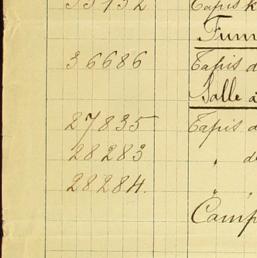 35132 Tapis
Fum
36686 Tapis d
Salle à
27835 Tapis d
28283 " d
28284. " "
Camp